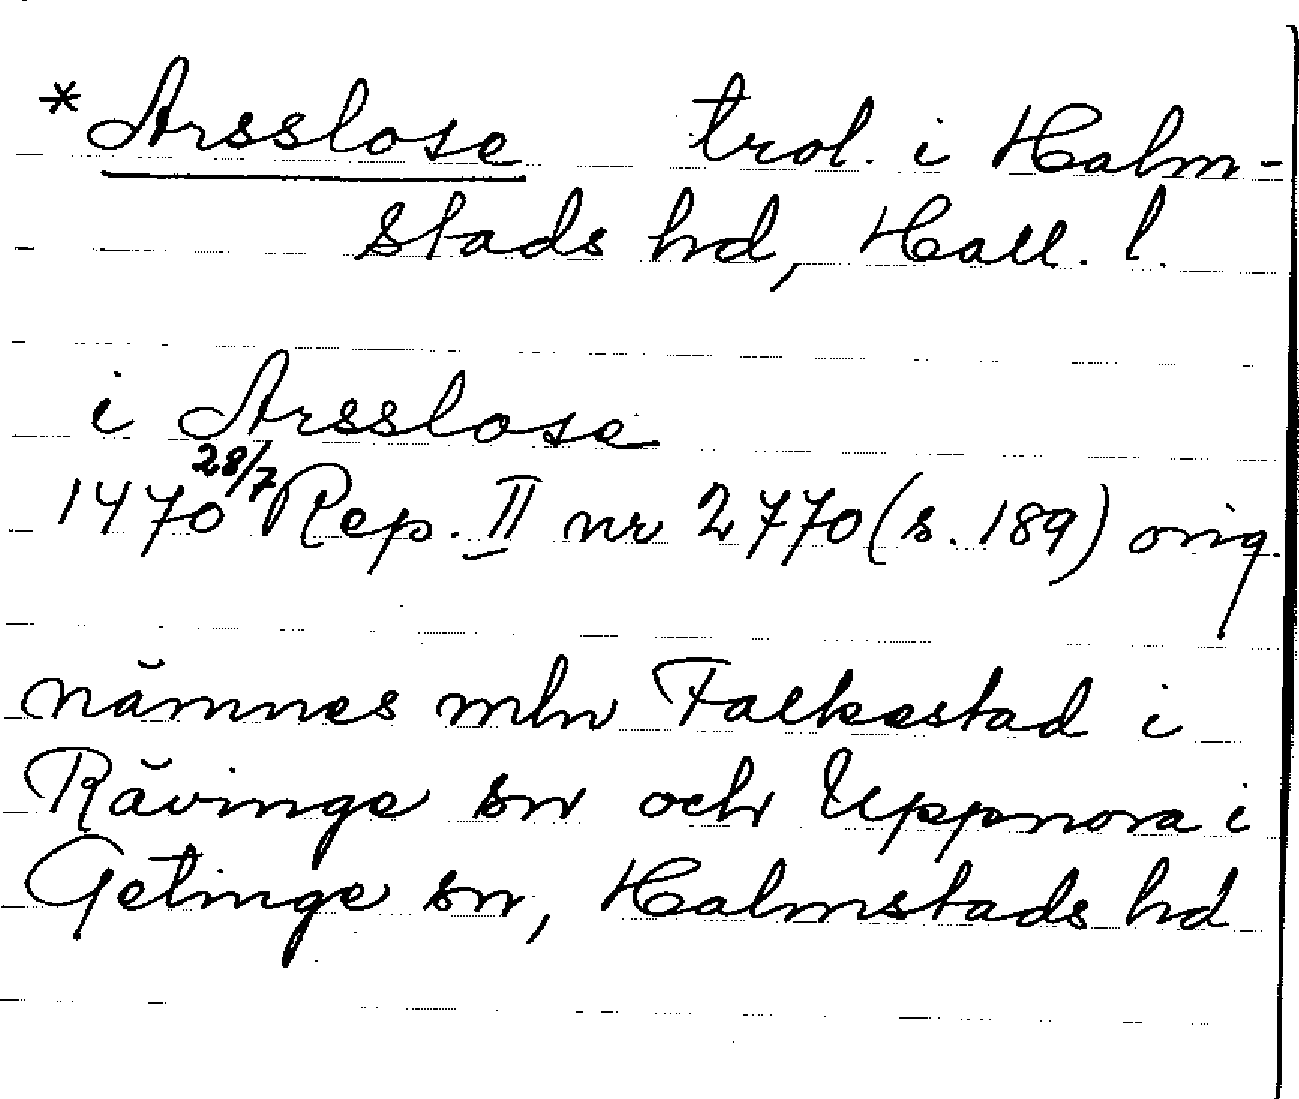 *Arsslose trol. i Halm-
stads hd, Hall. l.
i Arsslose
1470 28/7 Rep. II nr 2770 (s. 189) orig.
nämnes mln Falkestad i
Råvinge sn och Uppnora i
Getinge sn, Halmstads hd